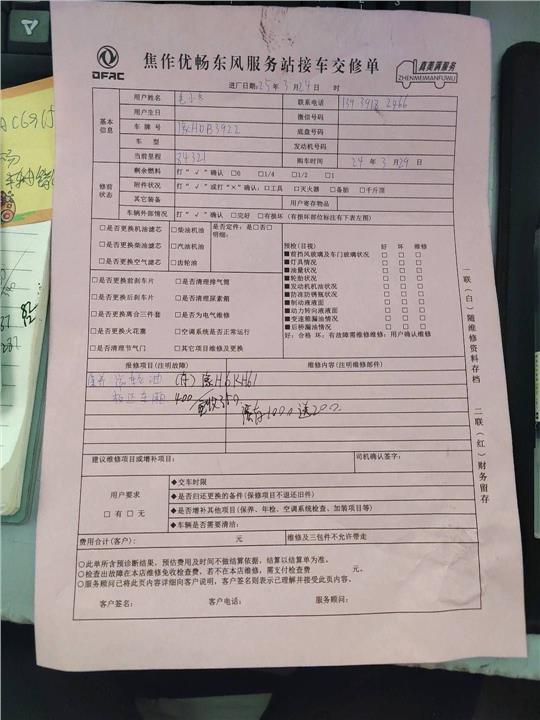 DFAC
焦作优畅东风服务站接车交修单
真美满服务
ZHENMEIMANFUWU
进厂日期:25年3月24日 时
基本信息
用户姓名
联系电话
用户生日
微信号码
车牌号 豫HDB3922
底盘号码
车型
发动机号码
当前里程 34321
购车时间 24年3月29日
修前状态
剩余燃料 打“√”确认 □0 □1/4 □1/2 □1
附件状况 打“√”或打“×”确认:□工具 □灭火器 □备胎 □千斤顶
其它装备
用户寄存物品
车辆外部情况 打“√”确认 □完好 □有损坏(有损坏部位标注有下表左图)
□是否更换机油滤芯 □柴油机油
□是否更换柴油滤芯 □汽油机油
□是否更换空气滤芯 □齿轮油
是否定件:是□否□
明细:
□是否更换前刹车片 □是否清理排气筒
□是否更换后刹车片 □是否清理尿素箱
□是否更换离合三件套 □是否为电气维修
□是否更换火花塞 □空调系统是否正常运行
□是否清理节气门 □其它项目维修及更换
预检(目视) 好 坏 维修
■前挡风玻璃及车门玻璃状况 □ □ □
■灯具情况 □ □ □
■油量状况 □ □ □
■轮胎状况 □ □ □
■发动机机油状况 □ □ □
■防冻防锈瓶状况 □ □ □
■制动液液面 □ □ □
■动力转向液液面 □ □ □
■变速箱漏油情况 □ □ □
■后桥漏油情况 □ □ □
好:合格 坏:有故障需维修维修:用户确认维修
报修项目(注明故障)
维修内容(注明维修部件)
保养
豫H6KH61
400
350
1000送200
建议维修项目或增补项目:
司机确认签字:
用户要求
□有 □无
◆交车时限
◆是否归还更换的备件(保修项目不退还旧件)
◆是否增补其他项目(保养、年检、空调系统检查、加装项目等)
◆车辆是否需要清洁:
费用合计(客户): 元
维修及三包件不允许带走
○此单所含预诊断结果,预估费用及时间不做结算依据,结算以结算单为准。
○检查出故障在本店维修免收检查费,若不在本店维修,需支付检查费 元。
○服务顾问已将此页内容详细向客户说明,客户签名则表示已理解并接受此页内容。
客户签名: 客户电话: 服务顾问:
一联(白)随维修资料存档
二联(红)财务留存